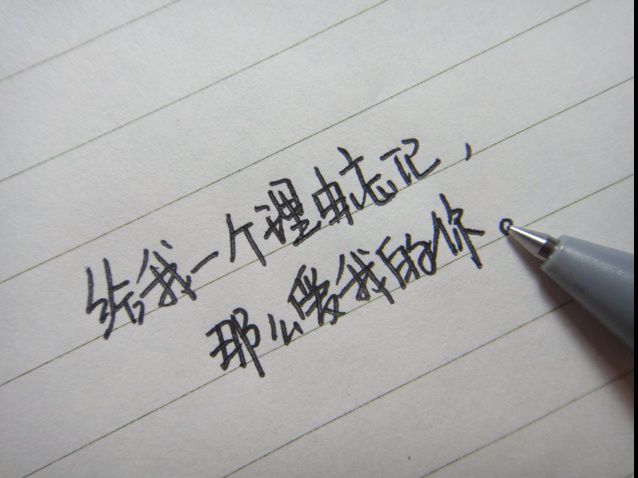 给我一个理由忘记，
那么爱我的你。